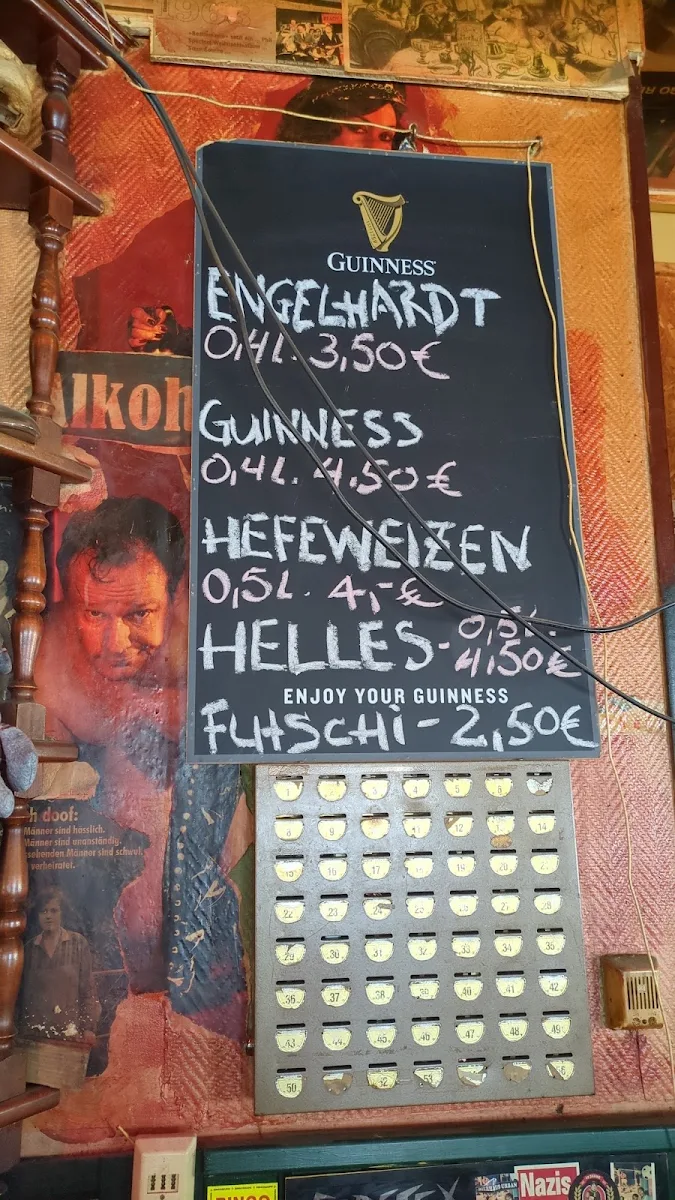 GUINNESS
ENGELHARDT
0,4L. 3,50€
GUINNESS
0,4L. 4,50€
HEFEWEIZEN
0,5L. 4,-€
HELLES - 0,5L.
4,50€
ENJOY YOUR GUINNESS
FUTSCHI - 2,50€
Alkoh
h doof:
Männer sind hässlich.
Männer sind unanständig.
verheiratet.
1 3 4 5 6
8 9 11 12 14
15 16 17 18 19 20
22 23 24 25 27 28
29 30 31 32 33 34 35
36 37 38 39 40 41 42
43 44 45 46 47 48 49
50 52 53
BINGO
Nazis